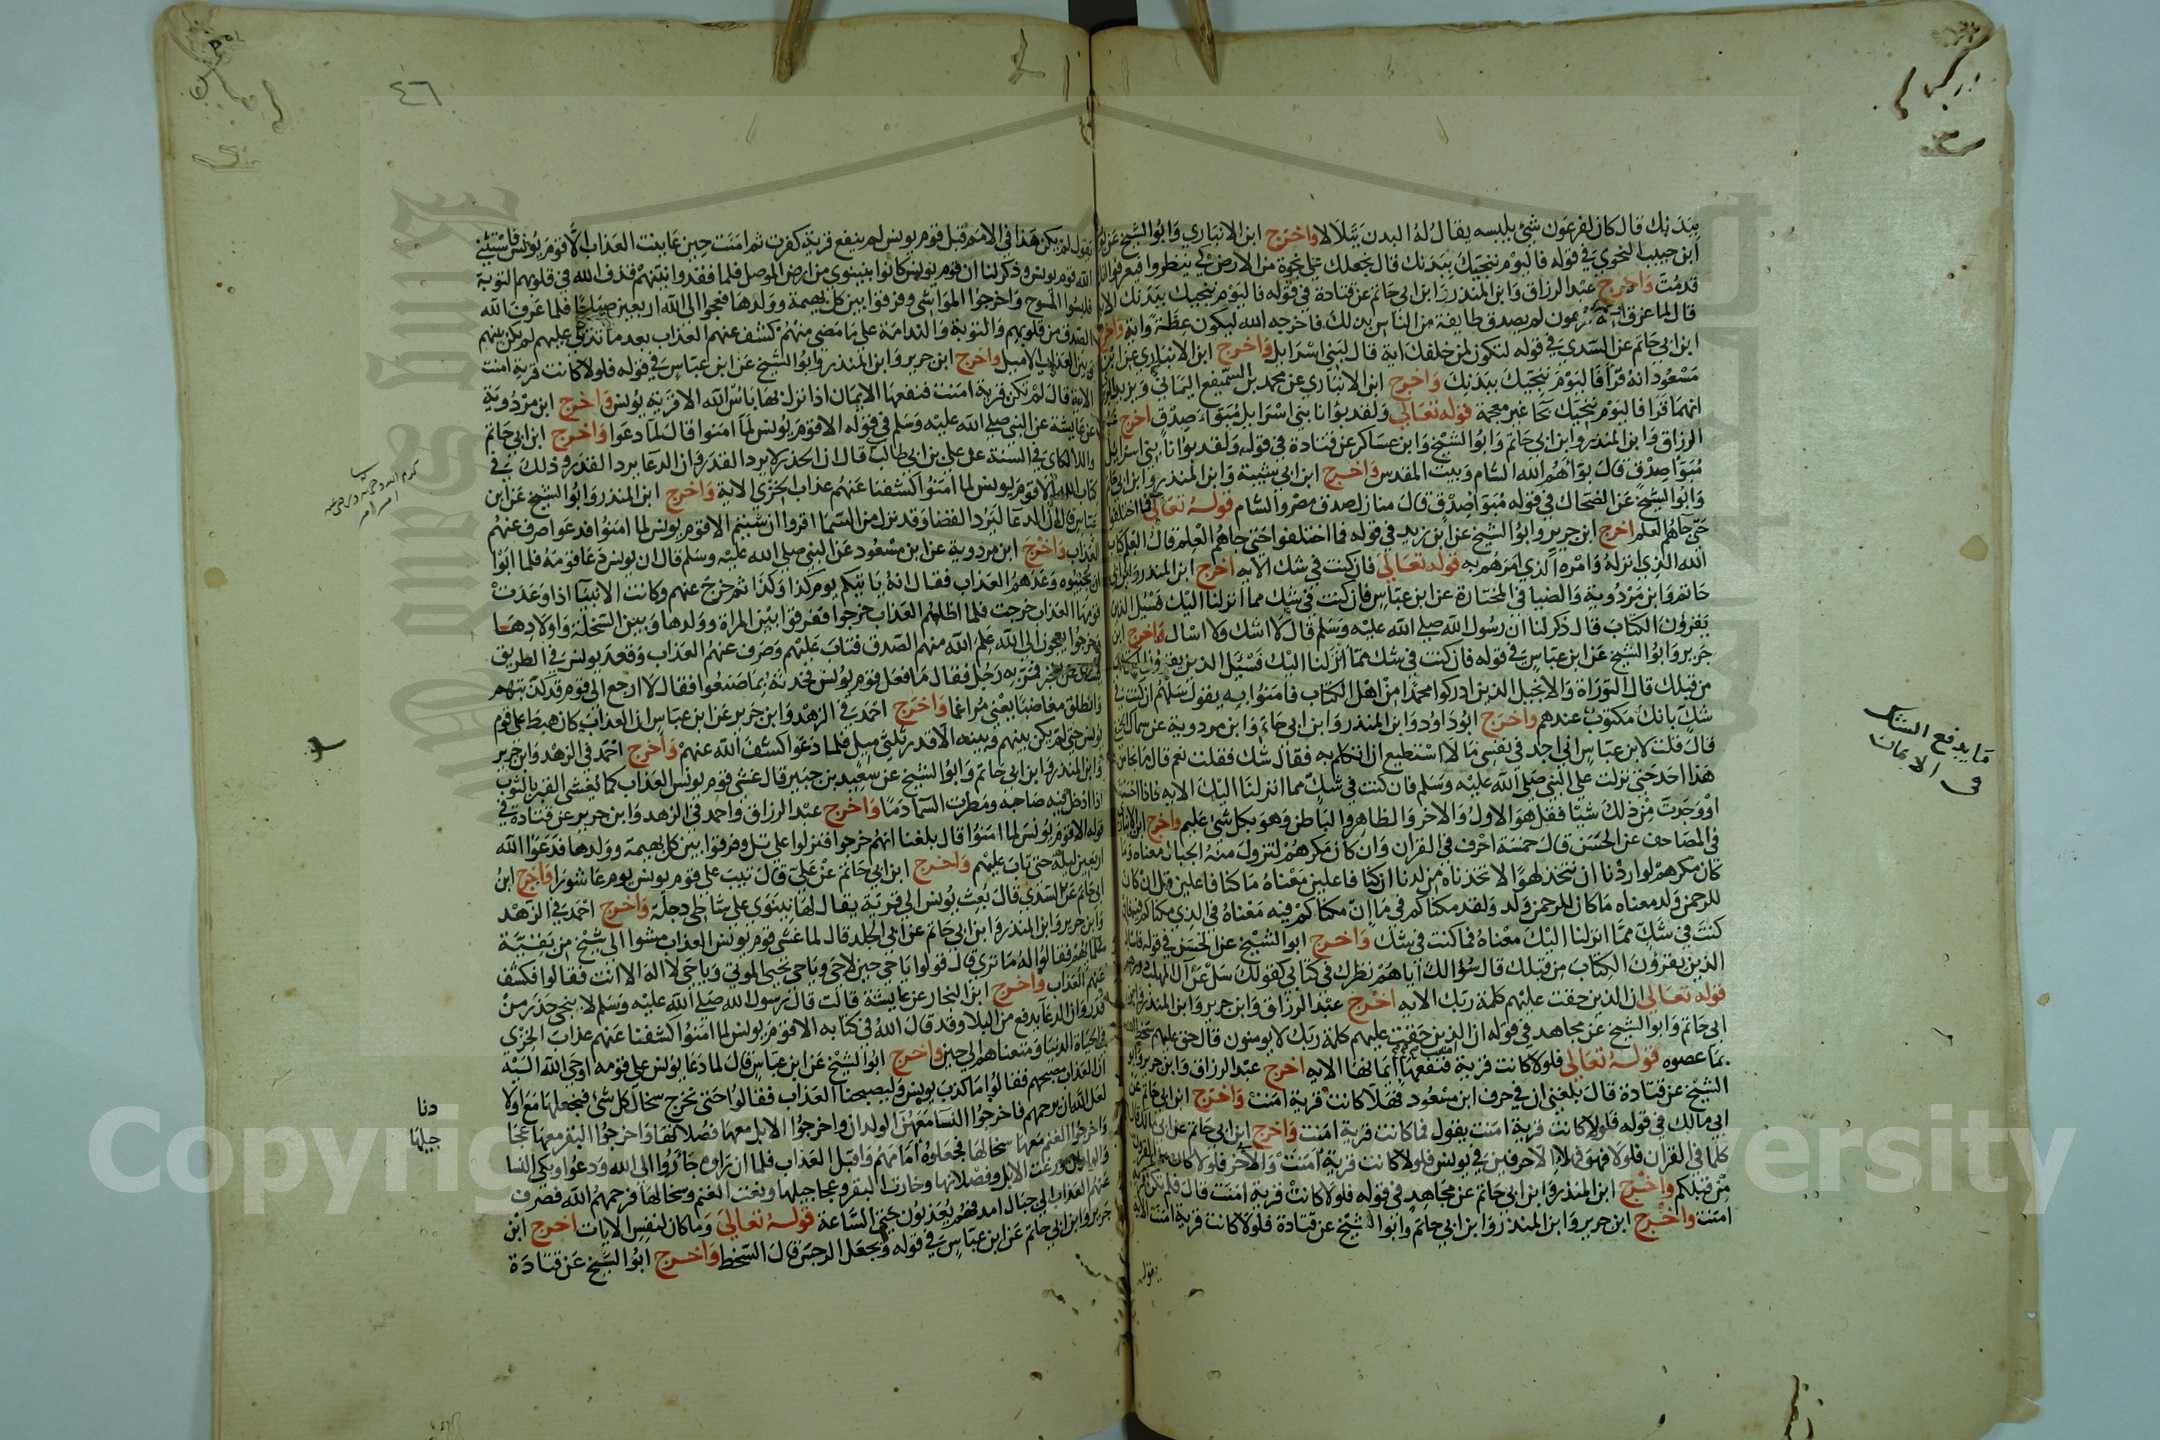 ببدنك قال كان لفرعون شئ يلبسه يقال له البدن يتلالا واخرج ابن الانباري وابو الشيخ عن
ابن حبيب النحوي في قوله فاليوم ننجيك ببدنك قال نجعلك على نجوة من الارض كي ينظروا فيعرفوا انك
قدمت واخرج عبد الرزاق وابن المنذر وابن ابي حاتم عن قتادة في قوله فاليوم ننجيك ببدنك الاية
قال لما غرق الله فرعون لم يصدق طايفة من الناس بذلك فاخرجه الله ليكون عظة واية واخرج
ابن ابي حاتم عن السدي في قوله لتكون لمن خلفك اية قال لبني اسرايل واخرج ابن الانباري عن ابن
مسعود انه قرأ فاليوم ننجيك ببدنك واخرج ابن الانباري عن محمد بن السميفع اليماني ويزيد
انهما قرا فاليوم ننحيك بحا غير معجمة قوله تعالى ولقد بوانا بني اسرايل مبوا صدق اخرج عبد
الرزاق وابن المنذر وابن ابي حاتم وابو الشيخ وابن عساكر عن قتادة في قوله ولقد بوانا بني اسرايل
مبوا صدق قال بواهم الله الشام وبيت المقدس واخرج ابن ابي شيبة وابن المنذر وابن ابي حاتم
وابو الشيخ عن الضحاك في قوله مبوا صدق قال منازل صدق مصر والشام قوله تعالى فما اختلفوا
حتى جاهم العلم اخرج ابن جرير وابو الشيخ عن ابن زيد في قوله فما اختلفوا حتى جاهم العلم قال العلم كتاب
الله الذي انزله وامره الذي امرهم به قوله تعالى فان كنت في شك الاية اخرج ابن المنذر وابن ابي
حاتم وابن مردوية والضيا في المختارة عن ابن عباس فان كنت في شك مما انزلنا اليك فسئل الذين
يقرؤن الكتاب قال ذكر لنا ان رسول الله صلى الله عليه وسلم قال لا اشك ولا اسال واخرج ابن
جرير وابو الشيخ عن ابن عباس في قوله فان كنت في شك مما انزلنا اليك فسئل الذين يقرؤن الكتاب
من قبلك قال التوراة والانجيل الذين ادركوا محمدا من اهل الكتاب فامنوا به يقول سلهم ان كنت في
شك بانك مكتوب عندهم واخرج ابو داود وابن المنذر وابن ابي حاتم وابن مردوية عن سماك الحنفي
قال قلت لابن عباس اني اجد في نفسي ما لا استطيع ان اتكلم به فقال شك فقلت نعم قال ما نجا من
هذا احد حتى نزلت على النبي صلى الله عليه وسلم فان كنت في شك مما انزلنا اليك الاية فاذا احسست
او وجدت من ذلك شيئا فقل هو الاول والاخر والظاهر والباطن وهو بكل شئ عليم واخرج ابن الانباري
في المصاحف عن الحسن قال خمسة احرف في القران وان كان مكرهم لتزول منه الجبال معناه وما
كان مكرهم لو اردنا ان نتخذ لهوا لاتخذناه من لدنا ان كنا فاعلين معناه ما كنا فاعلين قل ان كان
للرحمن ولد معناه ما كان للرحمن ولد ولقد مكناكم في ما ان مكناكم فيه معناه في الذي ما مكناكم فيه فان
كنت في شك مما انزلنا اليك معناه فما كنت في شك واخرج ابو الشيخ عن الحسن في قوله فاسال
الذين يقرؤن الكتاب من قبلك قال سؤالك اياهم نظرك في كتابي كقولك سل عن آل المهلب دورهم
قوله تعالى ان الذين حقت عليهم كلمة ربك الاية اخرج عبد الرزاق وابن جرير وابن المنذر وابن
ابي حاتم وابو الشيخ عن مجاهد في قوله ان الذين حقت عليهم كلمة ربك لا يومنون قال حق عليهم سخط الله
بما عصوه قوله تعالى فلولا كانت قرية امنت فنفعها ايمانها الاية اخرج عبد الرزاق وابن جرير وابو
الشيخ عن قتادة قال بلغني ان في حرف ابن مسعود فهلا كانت قرية امنت واخرج ابن ابي حاتم عن
ابي مالك في قوله فلولا كانت قرية امنت يقول فما كانت قرية امنت واخرج ابن ابي حاتم عن ابي مالك قال
كلما في القران فلولا فهو فهلا الا حرفين في يونس فلولا كانت قرية امنت والاخر فلولا كان من القرون
من قبلكم واخرج ابن المنذر وابن ابي حاتم عن مجاهد في قوله فلولا كانت قرية امنت قال فلم تكن قرية
امنت واخرج ابن جرير وابن المنذر وابن ابي حاتم وابو الشيخ عن قتادة فلولا كانت قرية امنت الاية
يقول
ما يدفع الشك
في الايمان
٤٦
يقول لم يكن هذا في الامم قبل قوم يونس لم ينفع قرية كفرت ثم امنت حين عاينت العذاب الا قوم يونس فاستثنى
الله قوم يونس وذكر لنا ان قوم يونس كانوا بنينوى من ارض الموصل فلما فقدوا نبيهم قذف الله في قلوبهم التوبة
فلبسوا المسوح واخرجوا المواشي وفرقوا بين كل بهيمة وولدها فعجوا الى الله اربعين صباحا فلما عرف الله
الصدق من قلوبهم والتوبة والندامة على ما مضى منهم كشف عنهم العذاب بعد ما تدلى عليهم لم يكن بينهم
وبين العذاب الا ميل واخرج ابن جرير وابن المنذر وابو الشيخ عن ابن عباس في قوله فلولا كانت قرية امنت
الاية قال لم تكن قرية امنت فنفعها الايمان اذا نزل بها باس الله الا قرية يونس واخرج ابن مردوية
عن عايشة عن النبي صلى الله عليه وسلم في قوله الا قوم يونس لما امنوا قال لما دعوا واخرج ابن ابي حاتم
واللالكاي في السنة عن علي بن ابي طالب قال ان الحذر لا يرد القدر وان الدعا يرد القدر وذلك في
كتاب الله الا قوم يونس لما امنوا كشفنا عنهم عذاب الخزي الاية واخرج ابن المنذر وابو الشيخ عن ابن
عباس قال ان الدعا ليرد القضا وقد نزل من السما اقروا ان شيتم الا قوم يونس لما امنوا فدعوا صرف عنهم
العذاب واخرج ابن مردوية عن ابن مسعود عن النبي صلى الله عليه وسلم قال ان يونس دعا قومه فلما ابوا
ان يجيبوه وعدهم العذاب فقال انه ياتيكم يوم كذا وكذا ثم خرج عنهم وكانت الانبيا اذا وعدت
قومها العذاب خرجت فلما اظلهم العذاب خرجوا ففرقوا بين المراة وولدها وبين السخلة واولادها
وخرجوا يعجون الى الله علم الله منهم الصدق فتاب عليهم وصرف عنهم العذاب وقعد يونس في الطريق
يسال عن الخبر فمر به رجل فقال ما فعل قوم يونس فحدثه بما صنعوا فقال لا ارجع الى قوم قد كذبتهم
وانطلق مغاضبا يعني مراغما واخرج احمد في الزهد وابن جرير عن ابن عباس ان العذاب كان هبط على قوم
يونس حتى لم يكن بينهم وبينه الا قدر ثلثي ميل فلما دعوا كشف الله عنهم واخرج احمد في الزهد وابن جرير
وابن المنذر وابن ابي حاتم وابو الشيخ عن سعيد بن جبير قال غشى قوم يونس العذاب كما يغشى القبر بالثوب
اذا ادخل فيه صاحبه ومطرت السما دما واخرج عبد الرزاق واحمد في الزهد وابن جرير عن قتادة في
قوله الا قوم يونس لما امنوا قال بلغنا انهم خرجوا فنزلوا على تل وفرقوا بين كل بهيمة وولدها فدعوا الله
اربعين ليلة حتى تاب عليهم واخرج ابن ابي حاتم عن علي قال تيب على قوم يونس يوم عاشورا واخرج ابن
ابي حاتم عن السدي قال بعث يونس الى قرية يقال لها نينوى على شاطي دجلة واخرج احمد في الزهد
وابن جرير وابن المنذر وابن ابي حاتم عن ابي الجلد قال لما غشى قوم يونس العذاب مشوا الى شيخ من بقية
علمايهم فقالوا له ما ترى قال قولوا يا حي حين لا حي ويا حي محيي الموتى ويا حي لا اله الا انت فقالوا فكشف
عنهم العذاب واخرج ابن النجار عن عايشة قالت قال رسول الله صلى الله عليه وسلم لا ينجي حذر من
قدر وان الدعا يدفع من البلا وقد قال الله في كتابه الا قوم يونس لما امنوا كشفنا عنهم عذاب الخزي
في الحياة الدنيا ومتعناهم الى حين واخرج ابو الشيخ عن ابن عباس قال لما دعا يونس على قومه اوحى الله اليه
ان العذاب مصبحهم فقالوا ما كذب يونس وليصبحنا العذاب فقالوا حتى نخرج سخال كل شئ فنجعلها مع اولا
لعل الله ان يرحمهم فاخرجوا النسا معهن الولدان واخرجوا الابل معها فصلانها واخرجوا البقر معها عجا
واخرجوا الغنم معها سخالها فجعلوه امامهم واقبل العذاب فلما ان راوه جاروا الى الله ودعوا وبكى النسا
والولدان ورغت الابل وفصلانها وخارت البقر وعجاجيلها وثغت الغنم وسخالها فرحمهم الله فصرف
عنهم العذاب الى جبال امد فهم يعذبون حتى الساعة قوله تعالى وما كان لنفس الايات اخرج ابن
جرير وابن ابي حاتم عن ابن عباس في قوله ويجعل الرجس قال السخط واخرج ابو الشيخ عن قتادة
دنا
جيلها
Copyright © King Saud University